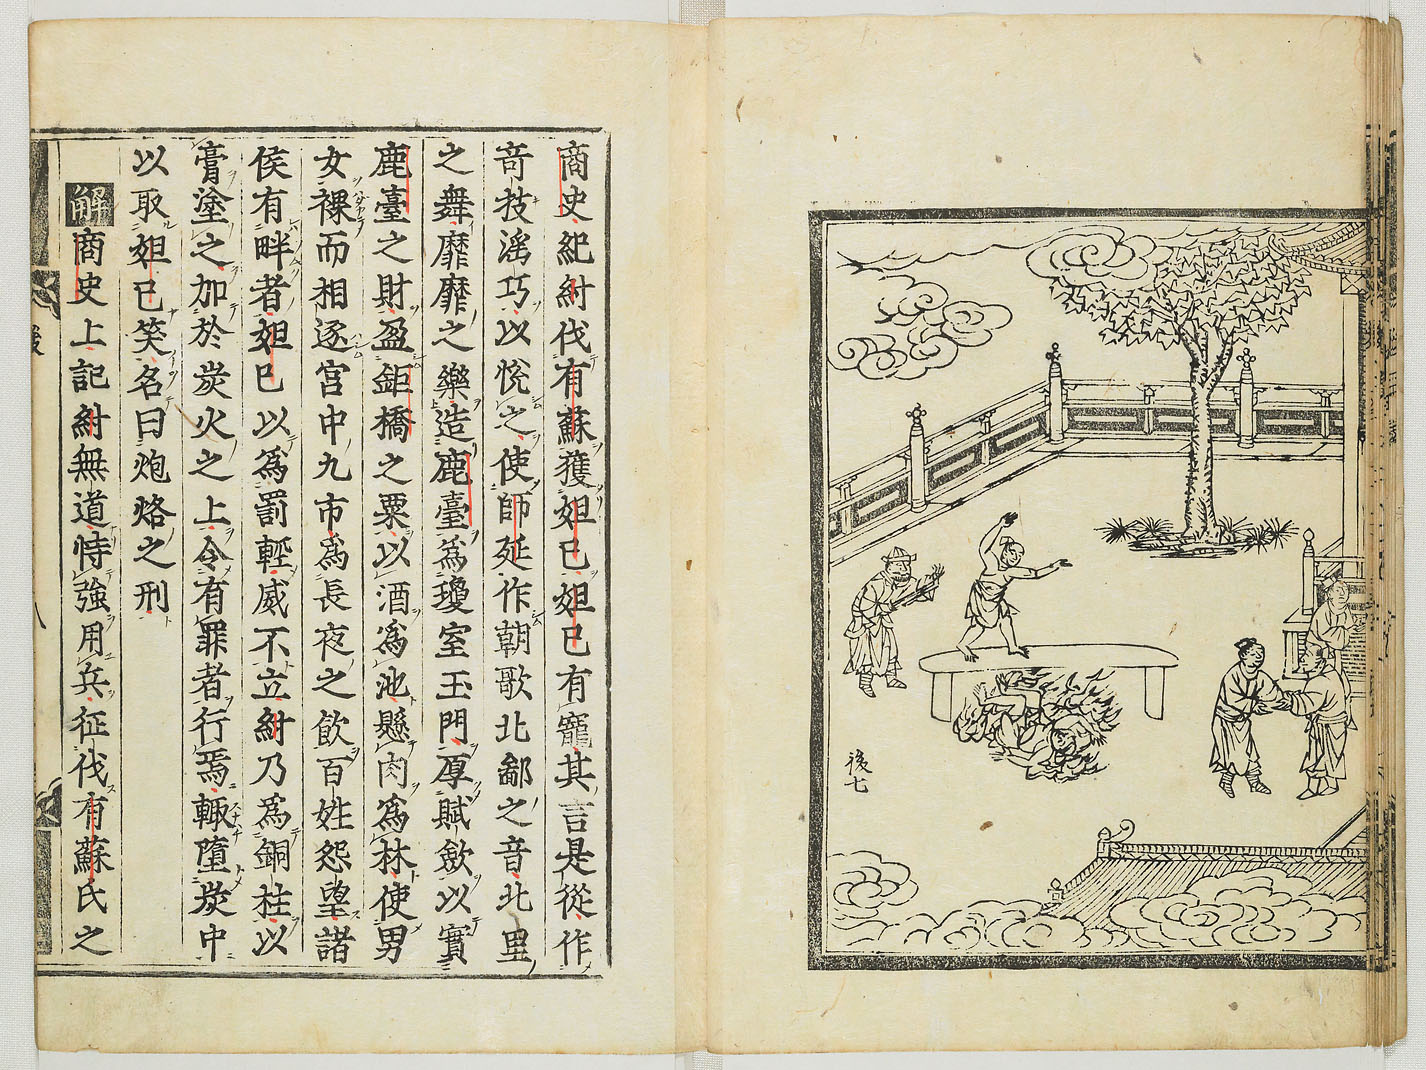 後七
商史紀紂伐有蘇獲妲己妲己有寵其言是從作
竒技滛巧以悅之使師延作朝歌北鄙之音北里
之舞靡靡之樂造鹿臺為瓊室玉門厚賦歛以實
鹿臺之財盈鉅橋之粟以酒為池懸肉為林使男
女裸而相逐宮中九市為長夜之飲百姓怨望諸
侯有畔者妲己以為罰輕威不立紂乃為銅柱以
膏塗之加於炭火之上令有罪者行焉輙墮炭中
以取妲己笑名曰炮烙之刑
解商史上記紂無道恃強用兵征伐有蘇氏之